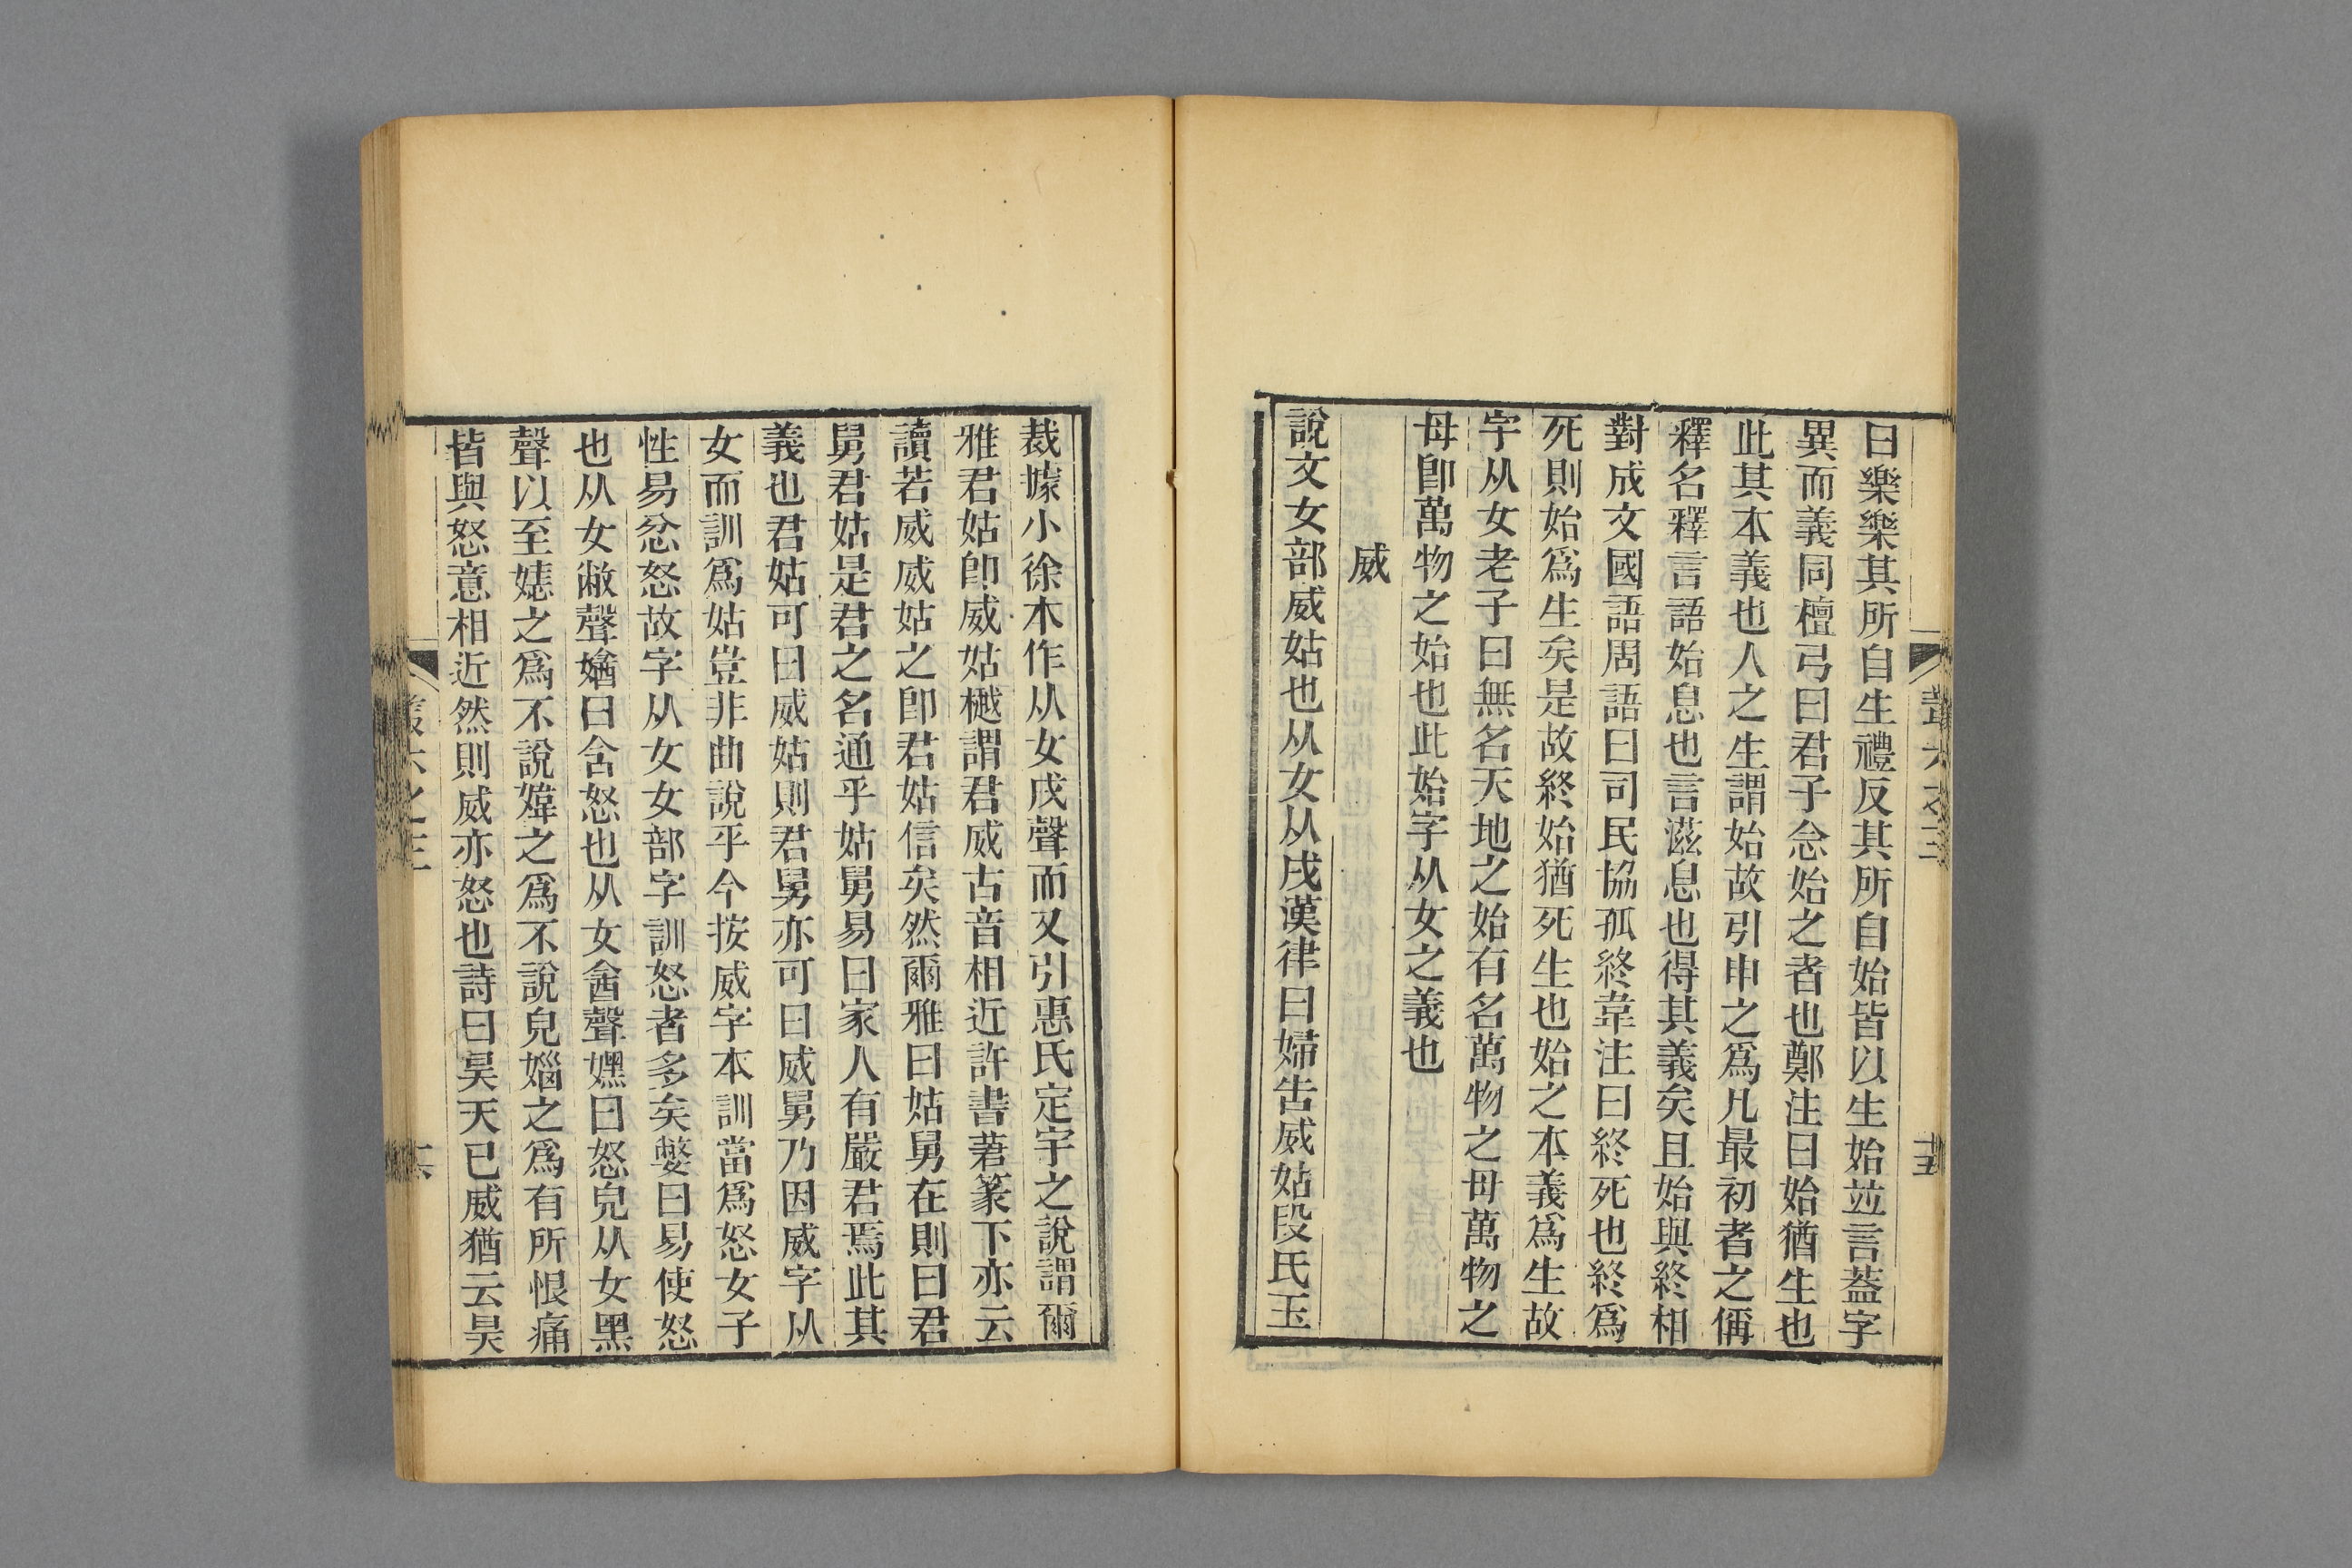 曰樂樂其所自生禮反其所自始皆以生始竝言葢字
異而義同檀弓曰君子念始之者也鄭注曰始猶生也
此其本義也人之生謂始故引申之爲凡最初者之偁
釋名釋言語始息也言滋息也得其義矣且始與終相
對成文國語周語曰司民協孤終韋注曰終死也終爲
死則始爲生矣是故終始猶死生也始之本義爲生故
字从女老子曰無名天地之始有名萬物之母萬物之
母卽萬物之始也此始字从女之義也
威
說文女部威姑也从女从戌漢律曰婦告威姑段氏玉
裁據小徐本作从女戌聲而又引惠氏定宇之說謂爾
雅君姑卽威姑樾謂君威古音相近許書莙篆下亦云
讀若威威姑之卽君姑信矣然爾雅曰姑舅在則曰君
舅君姑是君之名通乎姑舅易曰家人有嚴君焉此其
義也君姑可曰威姑則君舅亦可曰威舅乃因威字从
女而訓爲姑豈非曲說乎今按威字本訓當爲怒女子
性易忿怒故字从女女部字訓怒者多矣嫳曰易使怒
也从女敝聲嬒曰含怒也从女酓聲嫼曰怒皃从女黑
聲以至㛩之爲不說媁之爲不說皃㛴之爲有所恨痛
皆與怒意相近然則威亦怒也詩曰昊天已威猶云昊
叢六之三
十六